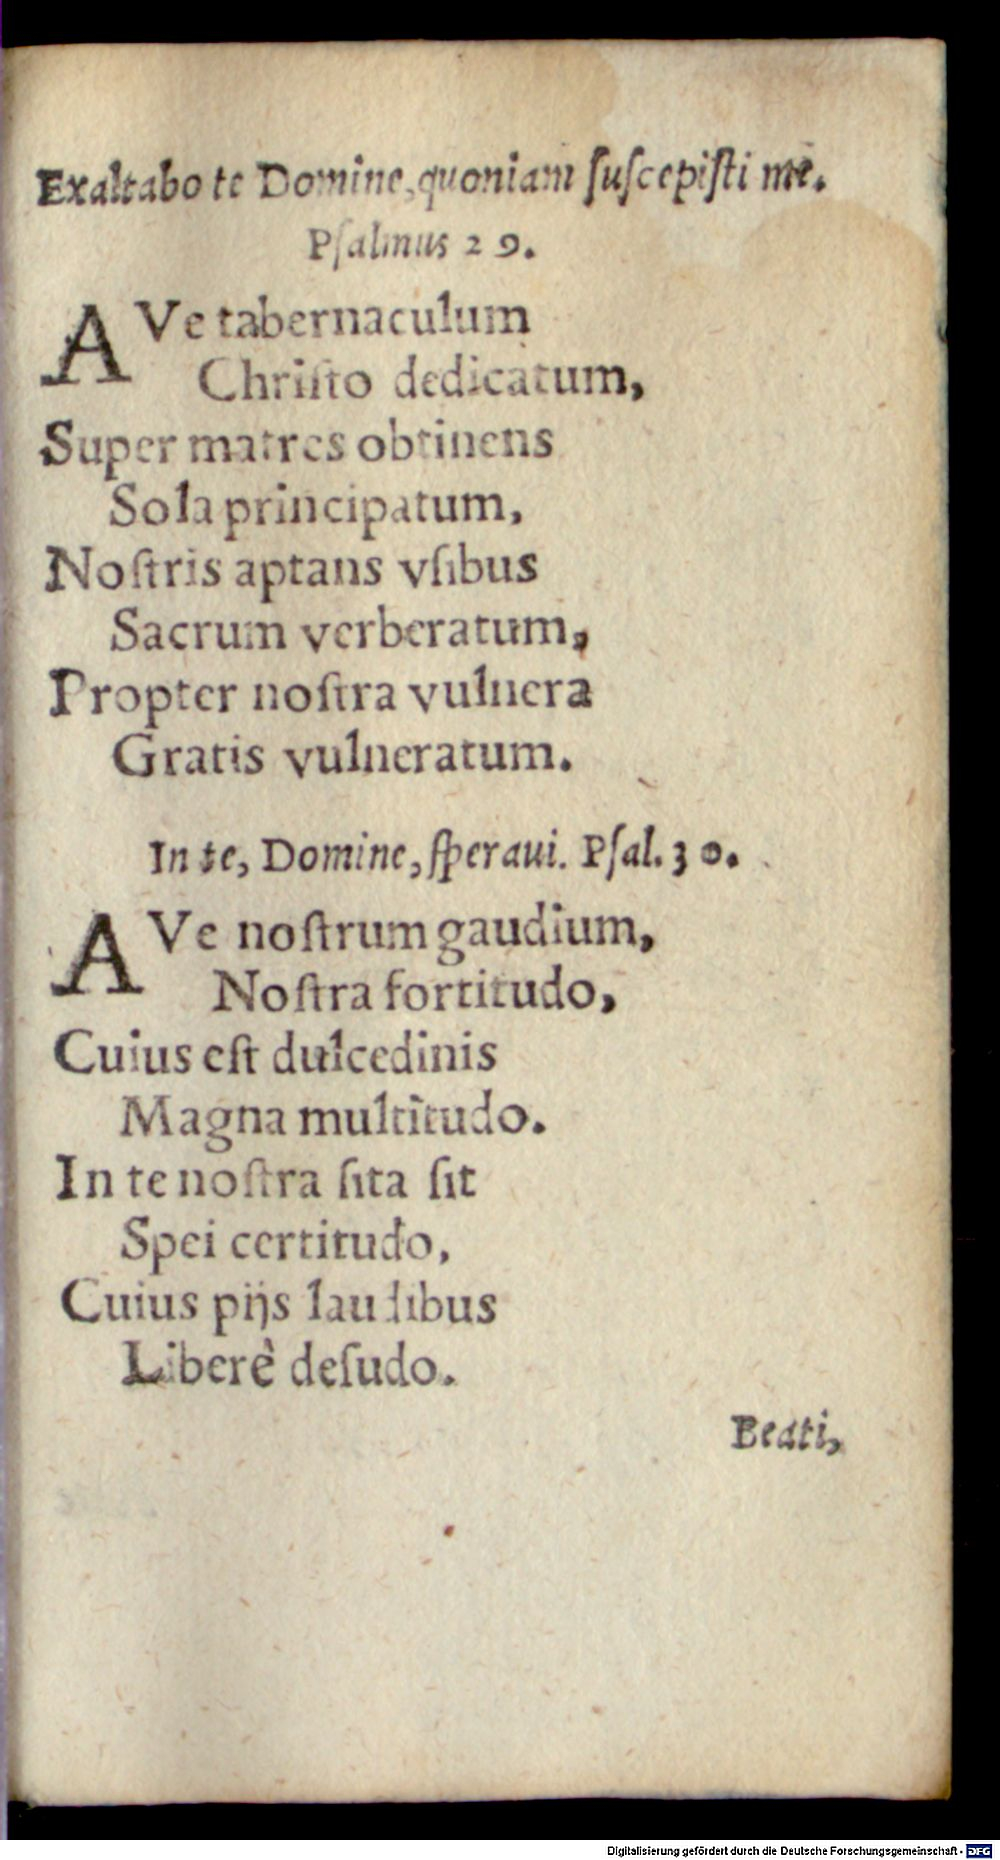 Exaltabo te Domine, quoniam ſuſcepiſti me.
Pſalmus 29.
AVe tabernaculum
Chriſto dedicatum,
Super matres obtinens
Sola principatum,
Noſtris aptans vſibus
Sacrum verberatum,
Propter noſtra vulnera
Gratis vulneratum.
In te, Domine, ſperaui. Pſal. 30.
AVe noſtrum gaudium,
Noſtra fortitudo,
Cuius eſt dulcedinis
Magna multitudo.
In te noſtra ſita ſit
Spei certitudo,
Cuius pijs laudibus
Liberè deſudo.
Beati,
Digitalisierung gefördert durch die Deutsche Forschungsgemeinschaft - DFG